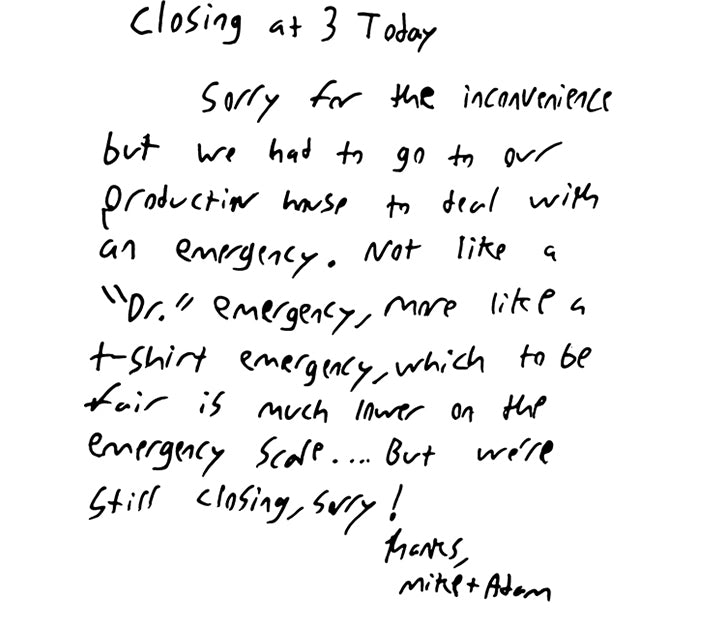 Closing at 3 Today
Sorry for the inconvenience
but we had to go to our
production house to deal with
an emergency. Not like a
"Dr." emergency, more like a
t-shirt emergency, which to be
fair is much lower on the
emergency scale.... But we're
still closing, sorry!
Thanks,
Mike + Adam